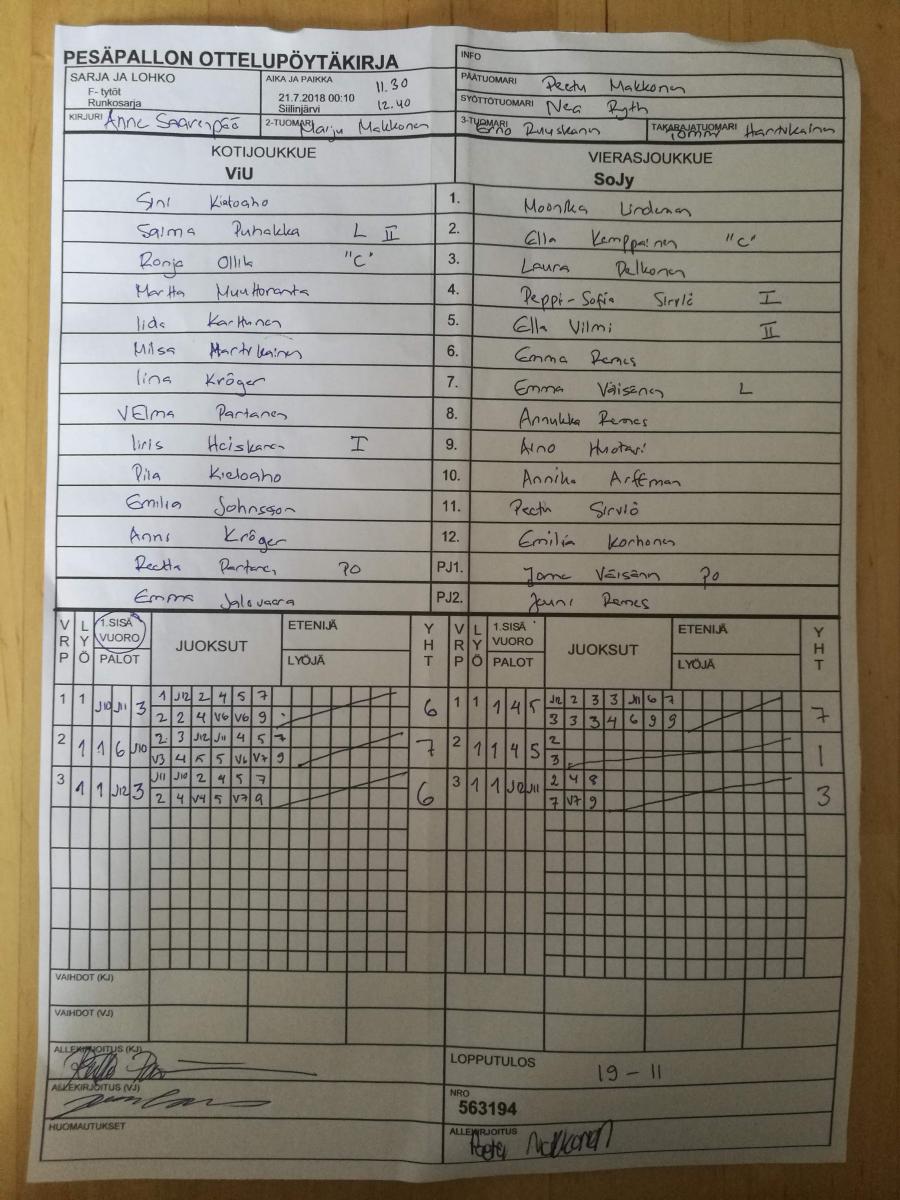 PESÄPALLON OTTELUPÖYTÄKIRJA
INFO
SARJA JA LOHKO
F- tytöt
Runkosarja
AIKA JA PAIKKA 11.30
21.7.2018 00:10 12.40
Siilinjärvi
PÄÄTUOMARI Peetu Makkonen
SYÖTTÖTUOMARI Nea Ryth
KIRJURI Anne Saarenpää
2-TUOMARI Marju Makkonen
3-TUOMARI Erno Ruuskann
TAKARAJATUOMARI Tommi Hartikainen
KOTIJOUKKUE
ViU
VIERASJOUKKUE
SoJy
Sini Kieloaho 1. Moonika Lindeman
Saima Puhakka L II 2. Ella Kemppainen "C"
Ronja Ollik "C" 3. Laura Pelkonen
Martta Muuttoranta 4. Peppi-Sofia Sirviö I
Iida Karttunen 5. Ella Vilmi II
Milsa Martikainen 6. Emma Remes
Iina Kröger 7. Emma Väisänen L
VElma Partanen 8. Annukka Remes
Iiris Heiskanen I 9. Aino Huotari
Piia Kieloaho 10. Annika Arffman
Emilia Johnsson 11. Peetu Sirviö
Anni Kröger 12. Emilia Korhonen
Reetta Partanen PO PJ1. Jorne Väisänn PO
Emma Jalovaara PJ2. Jouni Remes
V R P L Y Ö 1.SISÄ VUORO PALOT JUOKSUT ETENIJÄ LYÖJÄ Y H T
V R P L Y Ö 1.SISÄ VUORO PALOT JUOKSUT ETENIJÄ LYÖJÄ Y H T
1 1 J10 J11 3 1 J12 2 4 5 7 6
2 2 4 V6 V6 9
1 1 1 4 5 J12 2 3 3 J11 6 7 7
3 3 3 4 6 9 9
2 1 1 6 J10 2 3 J12 J11 4 5 7 7
V3 4 5 5 V6 V7 9
2 1 1 4 5 2 1
3
3 1 1 J12 3 J11 J10 2 4 5 7 6
2 4 V4 5 V7 9
3 1 1 J12 J11 2 4 8 3
7 V7 9
VAIHDOT (KJ)
VAIHDOT (VJ)
ALLEKIRJOITUS (KJ)
LOPPUTULOS 19 - 11
ALLEKIRJOITUS (VJ)
NRO
563194
HUOMAUTUKSET
ALLEKIRJOITUS
Peetu Makkonen